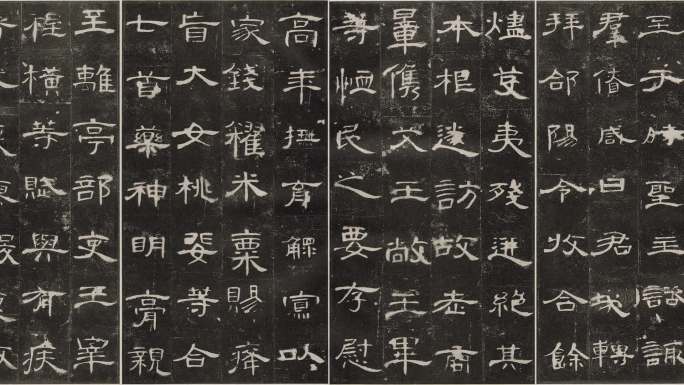 至于時聖主諮諏
羣僚咸曰君哉轉
拜郃陽令收合餘
燼芟夷殘迸絕其
本根遂訪故老商
量儁艾王敞王畢
等恤民之要存慰
高年撫育鰥寡以
家錢糴米粟賜癃
盲大女桃婓等合
七首藥神明膏親
至離亭部吏王皋
程橫等賦與有疾